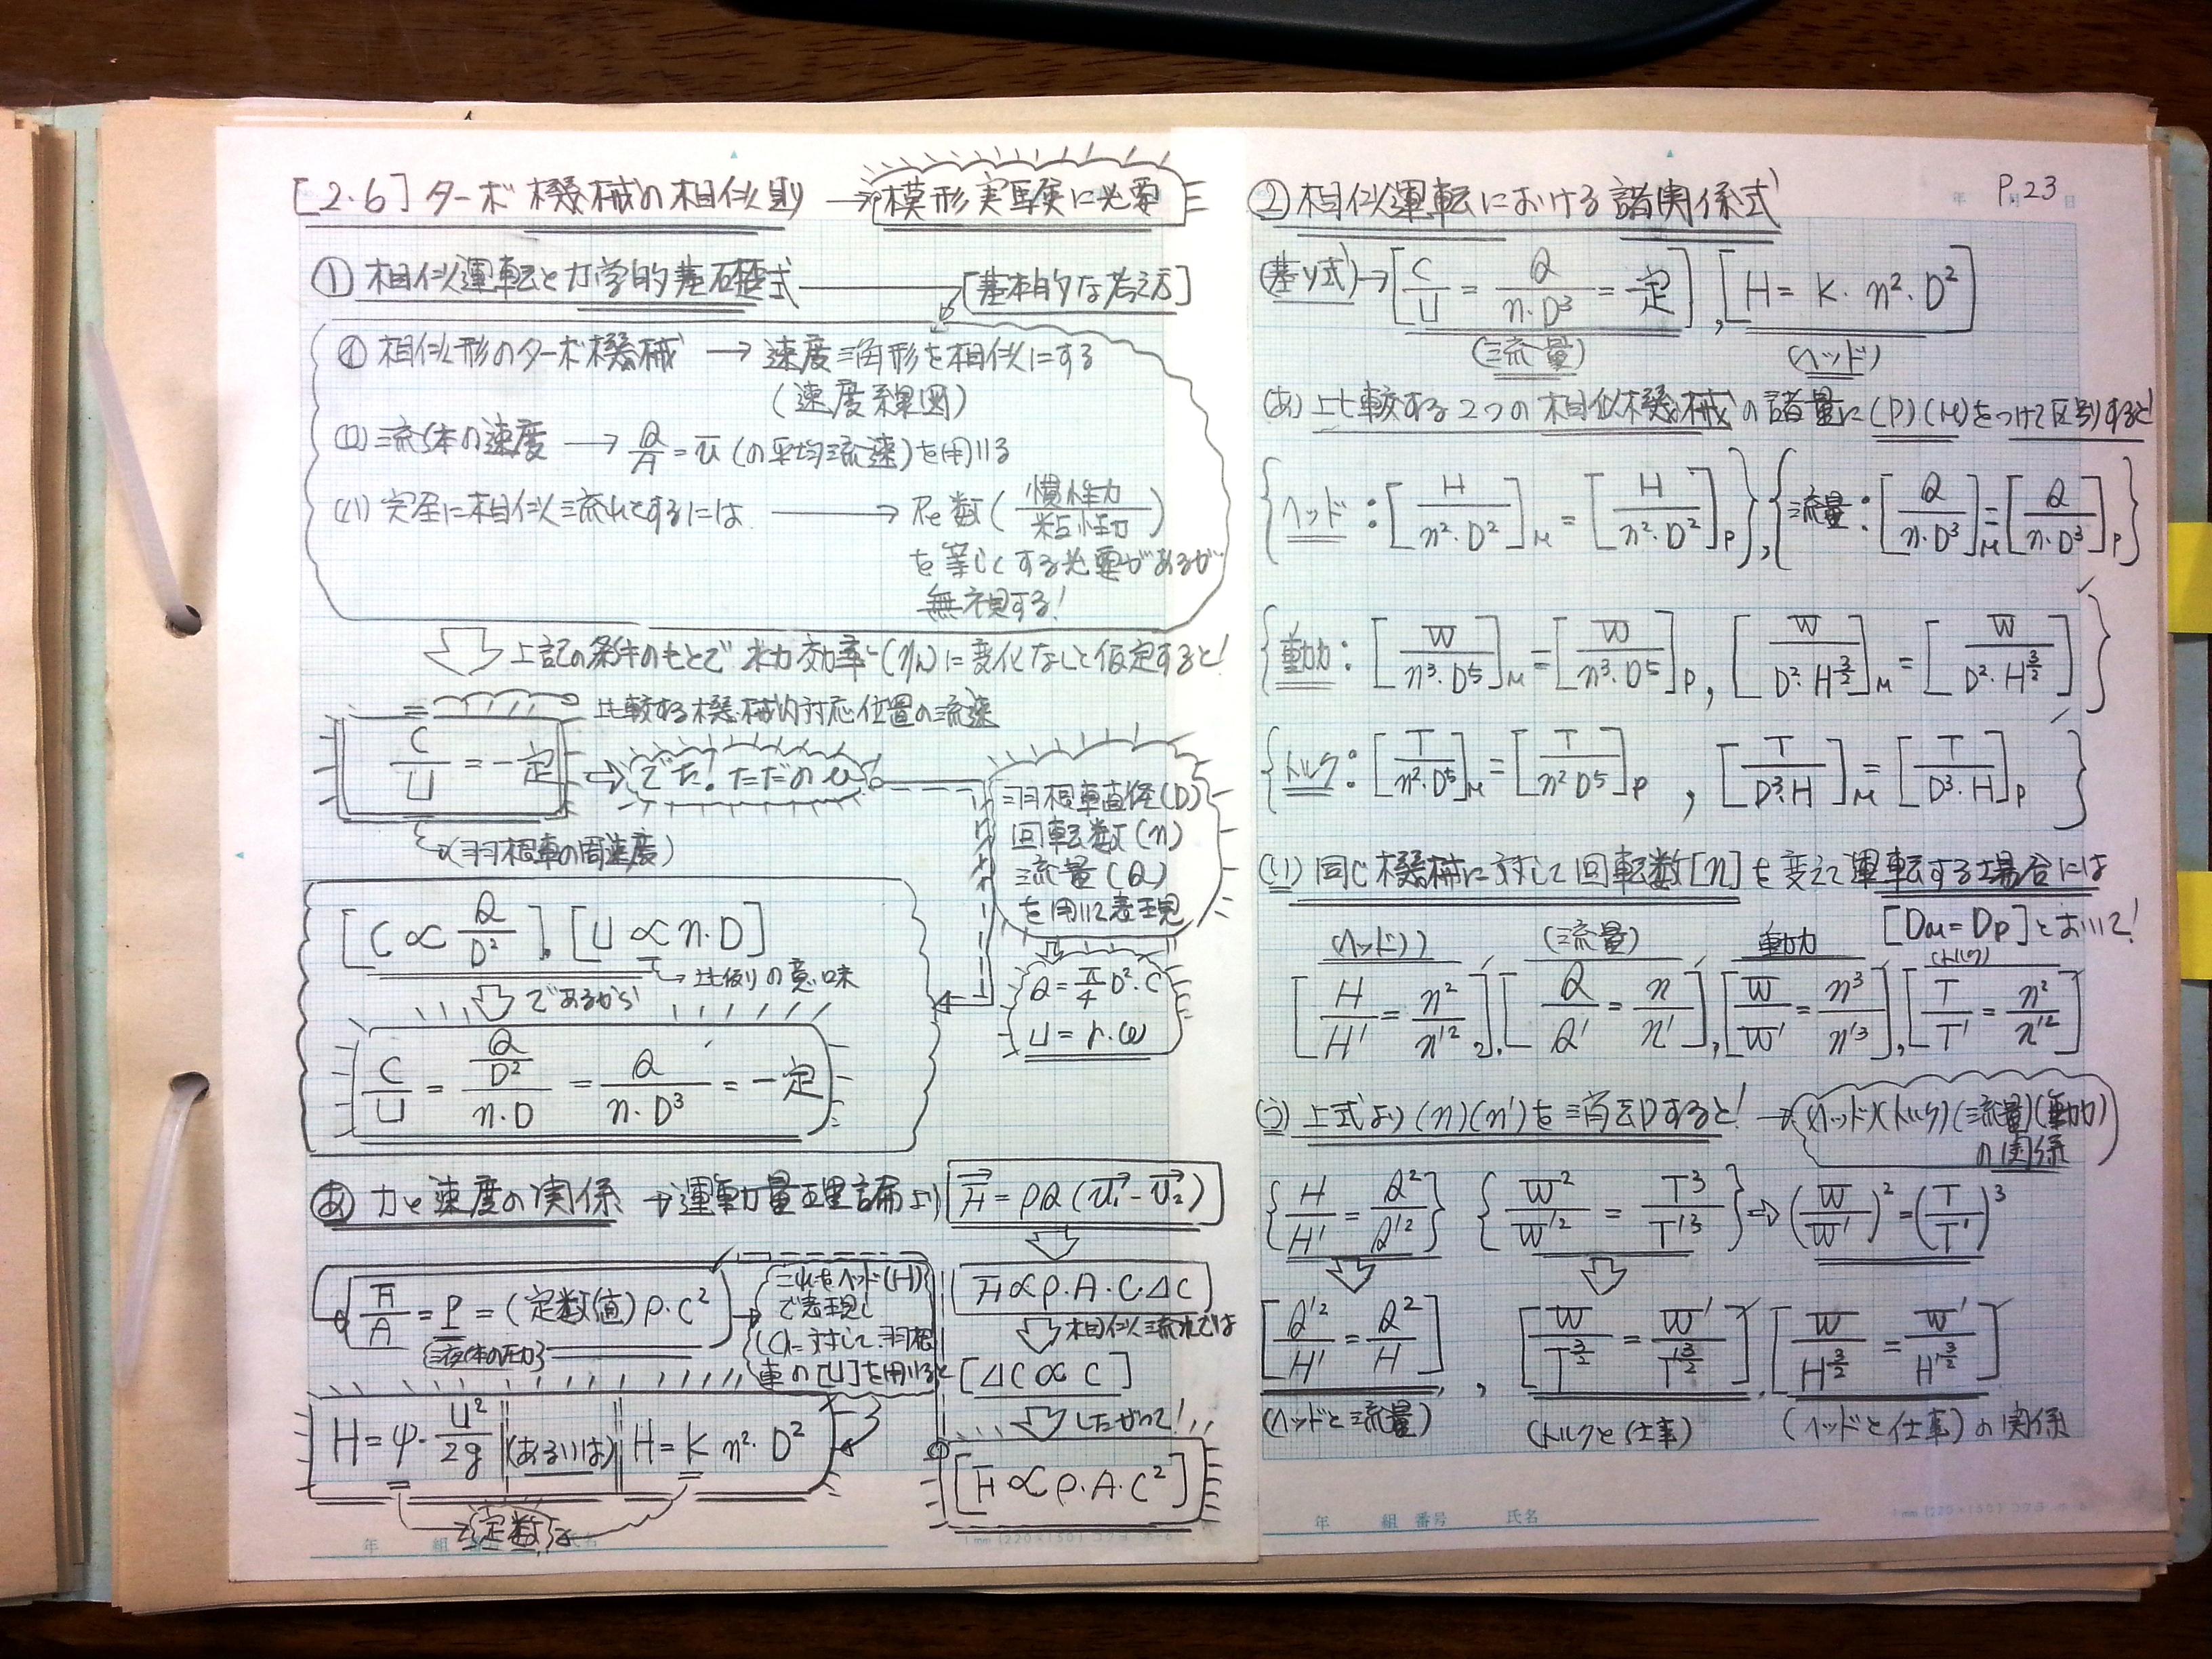 [2.6] ターボ機械の相似則 → 模形実験に必要
① 相似運転と力学的基礎式 [基本的な考え方]
(イ) 相似形のターボ機械 → 速度三角形を相似にする
(速度線図)
(ロ) 流体の速度 → Q/A = v (の平均流速)を用いる
(ハ) 完全に相似流れとするには → Re数 (慣性力/粘性力)
を等しくする必要があるが
無視する!
上記の条件のもとで 水力効率(ηh)に変化なしと仮定すると!
比較する機械内対応位置の流速
C/U = 一定 ⇒ でた! ただのu
(羽根車の周速度)
羽根車直径(D)
回転数(n)
流量(Q)
を用いて表現
[C ∝ Q/D²]. [U ∝ n・D]
→ 比例の意味
であるから
Q = π/4 D²・C
U = r・ω
C/U = (Q/D²)/(n・D) = Q/(n・D³) = 一定
(あ) 力と速度の関係 → 運動量理論より F = ρQ(v₁ - v₂)
F/A = P = (定数値) ρ・C²
液体の圧力
これをヘッド(H)
で表現し
(C)に対して羽根
車の[U]を用いると
F ∝ ρ・A・C・ΔC
相似流れでは
[ΔC ∝ C]
したがって!
[F ∝ ρ・A・C²]
H = ψ・U²/2g (あるいは) H = K n²・D²
定数
年 組 番号 氏名
P.23
年 月 日
② 相似運転における諸関係式
(基リ式) → [C/U = Q/(n・D³) = 一定], [H = K・n²・D²]
(流量) (ヘッド)
(あ) 比較する2つの相似機械の諸量に(P)(M)をつけて区別すると!
{ヘッド : [H/(n²・D²)]M = [H/(n²・D²)]P}, {流量 : [Q/(n・D³)]M = [Q/(n・D³)]P}
{動力 : [W/(n³・D⁵)]M = [W/(n³・D⁵)]P, [W/(D²・H^(3/2))]M = [W/(D²・H^(3/2))]}
{トルク : [T/(n²・D⁵)]M = [T/(n²D⁵)]P, [T/(D³・H)]M = [T/(D³・H)]P}
(い) 同じ機械に対して回転数[n]を変えて運転する場合には
[DM = DP]とおいて!
(ヘッド) (流量) 動力 (トルク)
[H/H' = n²/n'²], [Q/Q' = n/n'], [W/W' = n³/n'³], [T/T' = n²/n'²]
(う) 上式より(n)(n')を消去すると! → (ヘッド)(トルク)(流量)(動力)
の関係
{H/H' = Q²/Q'²} {W²/W'² = T³/T'³} ⇒ (W/W')² = (T/T')³
[Q'²/H' = Q²/H], [W/T^(3/2) = W'/T'^(3/2)], [W/H^(3/2) = W'/H'^(3/2)]
(ヘッドと流量) (トルクと仕事) (ヘッドと仕事)の関係
年 組 番号 氏名